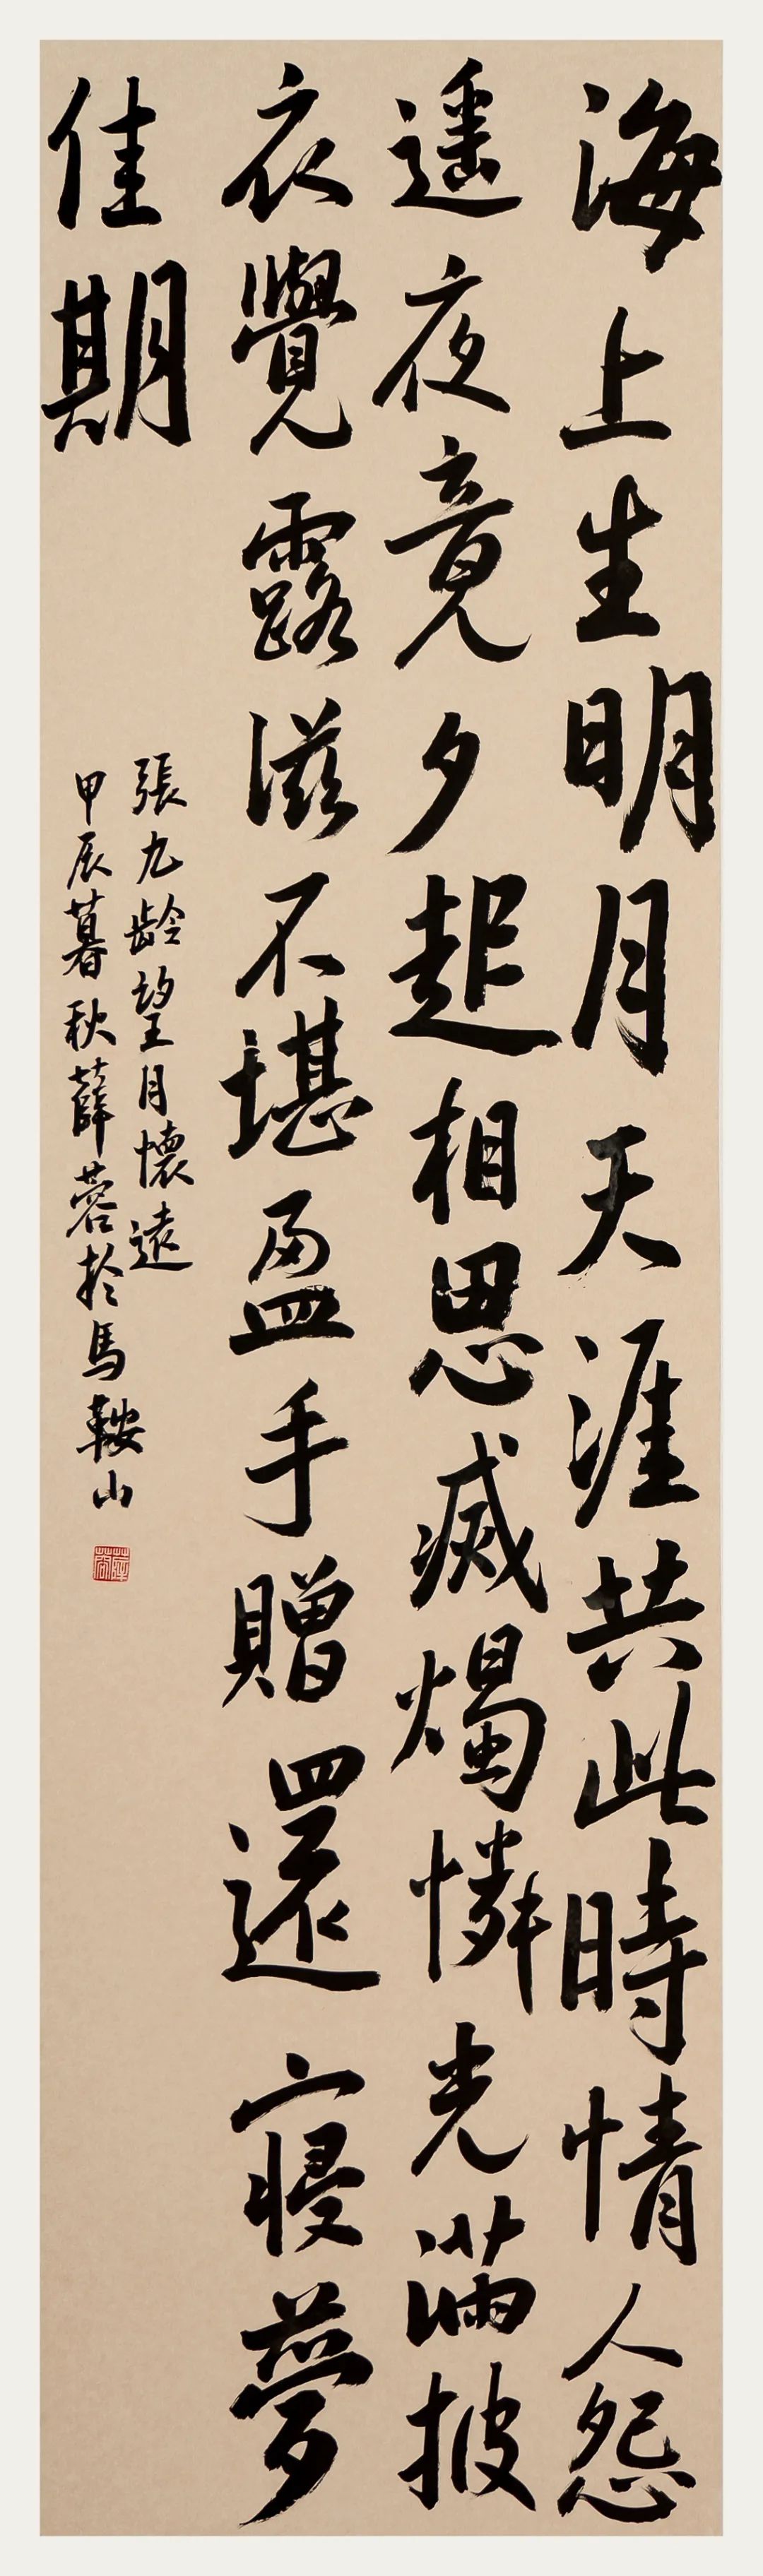 海上生明月天涯共此時情人怨
遥夜竟夕起相思滅燭憐光滿披
衣覺露滋不堪盈手贈還寢夢
佳期
張九齡望月懷遠
甲辰暮秋薛蓉於馬鞍山
薛蓉